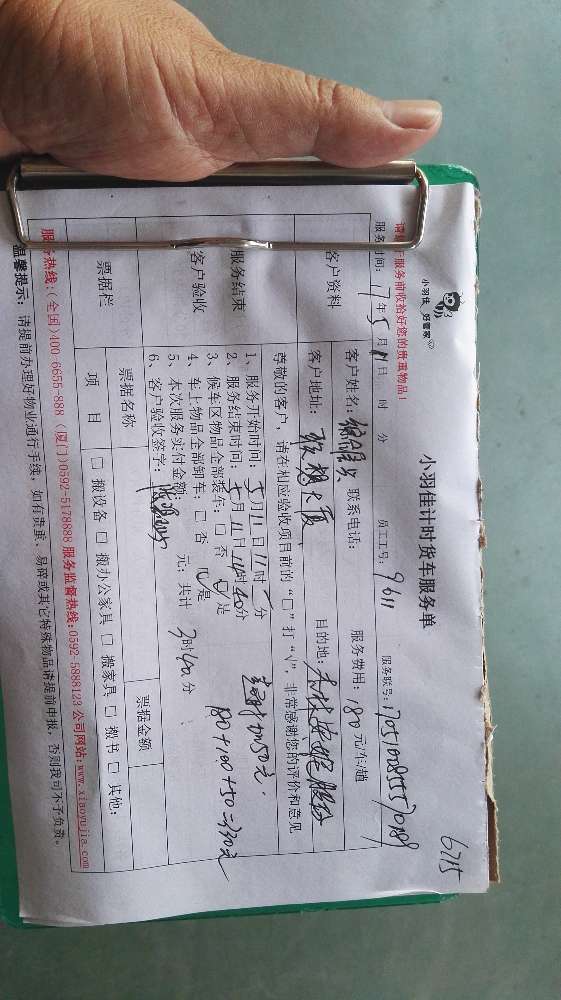 6715
小羽佳 好管家
小羽佳计时货车服务单
请 于服务前收拾好您的贵重物品!
员工工号: 9611
服务联号: 
服务时间: 17年5月11日 时 分
客户资料
客户姓名: 联系电话: 服务费用: 180 元/车/趟
客户地址: 大厦 目的地:
尊敬的客户,请在相应验收项目前的“□”打“√”,非常感谢您的评价和意见
服务结束
客户验收
1、服务开始时间: 5月11日11时 分
2、服务结束时间: 5月11日14时40分
3、候车区物品全部装车: □ 否 ☑ 是
4、车上物品全部卸车: □ 否 ☑ 是
5、本次服务实付金额: 元; 共计 3时40分
6、客户验收签字:
50元.
180+100+50=330元
票据栏
票据名称
票据金额
项 目
□ 搬设备 □ 搬办公家具 □ 搬家具 □ 搬书 □ 其他:
服务热线:(全国)400-6655-888 (厦门)0592-5178888 服务监督热线:0592-5888123 公司网站:www.xiaoyujia.com
温馨提示: 请提前办理好物业通行手续,如有贵重、易碎或其它特殊物品请提前申报,否则我司不予负责。